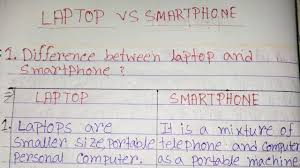 LAPTOP VS SMARTPHONE
1. Difference between laptop and
smartphone?
LAPTOP SMARTPHONE
1. Laptops are It is a mixture of
smaller size, portable telephone and computer
personal computer. as a portable machine